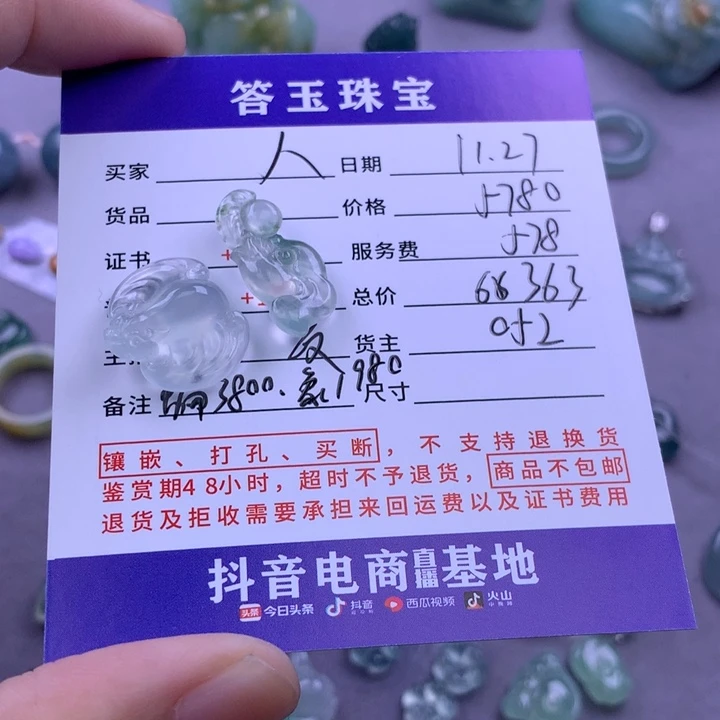 答玉珠宝
买家 人 日期 11.27
货品 价格 5780
证书 + 服务费 578
+ 总价 66363
货主 052
备注 3800. 象1980 尺寸
镶嵌、打孔、买断，不支持退换货
鉴赏期48小时，超时不予退货，商品不包邮
退货及拒收需要承担来回运费以及证书费用
抖音电商直播基地
头条 今日头条 抖音 西瓜视频 火山